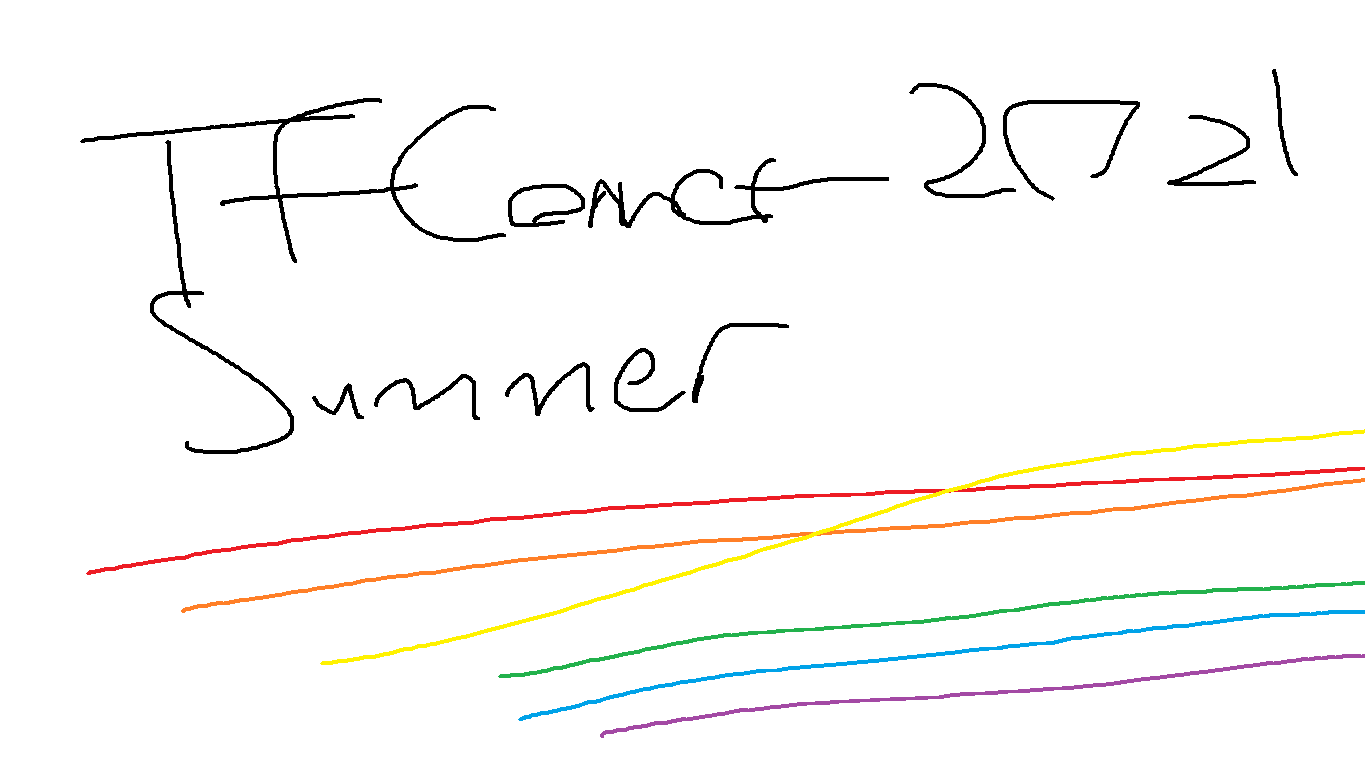 TFConnect 2021
Summer